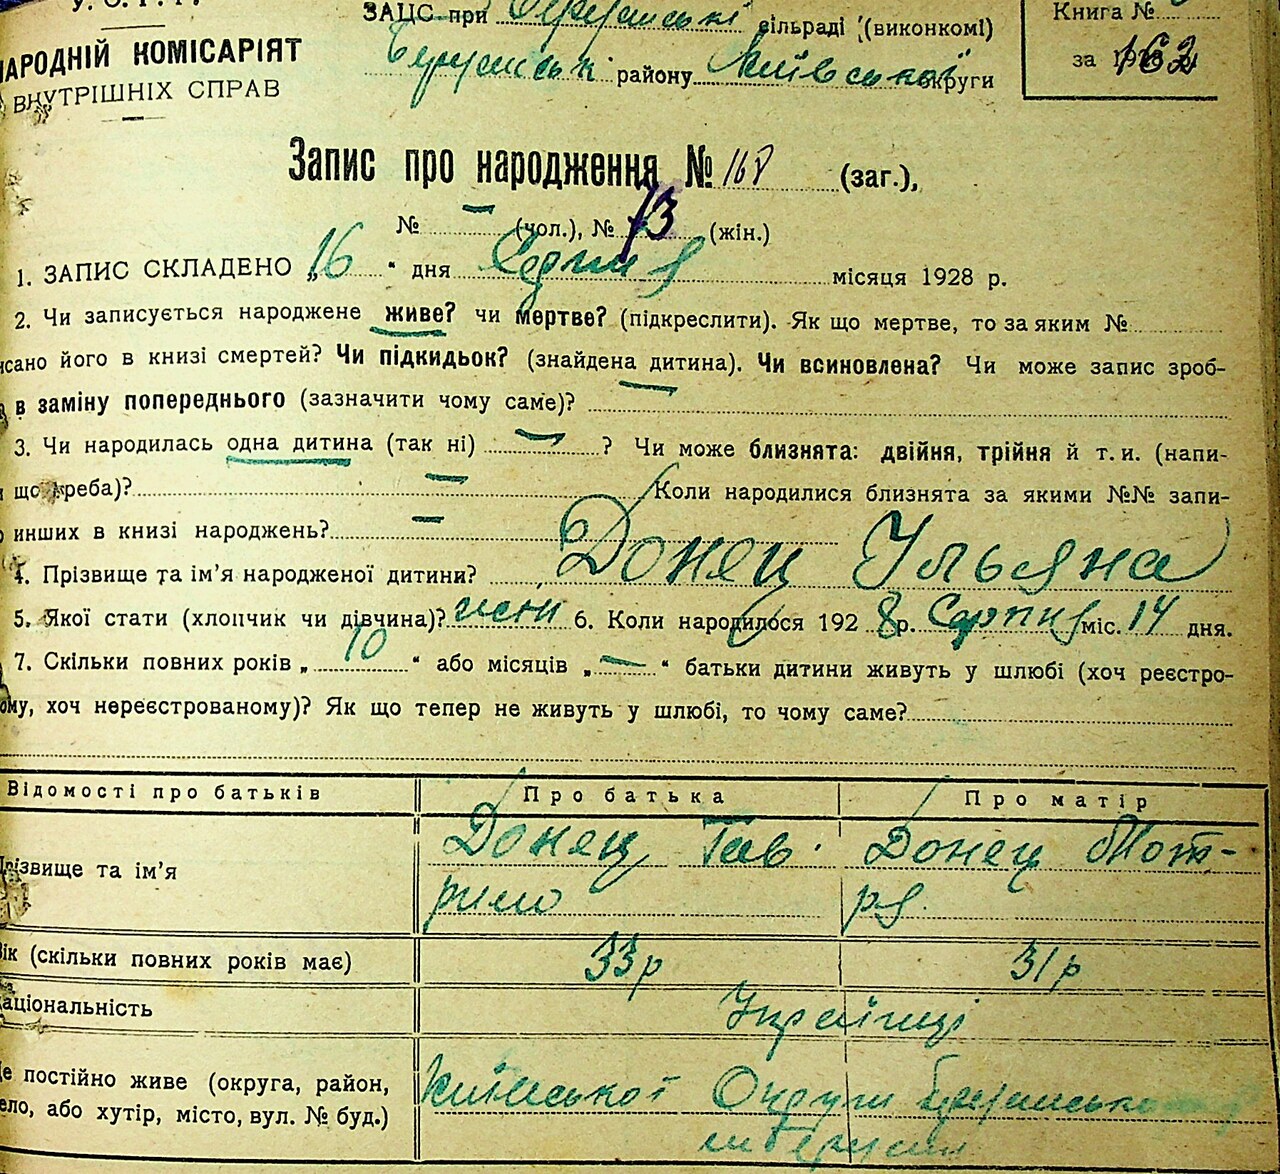 У. С. Р. Р.
ЗАЦС при сільраді (виконкомі)
району Київської округи
Книга №
за 162
НАРОДНІЙ КОМІСАРІЯТ
ВНУТРІШНІХ СПРАВ
Запис про народження № 168 (заг.),
№ — (чол.), № 73 (жін.)
1. ЗАПИС СКЛАДЕНО „16“ дня Серпня місяця 1928 р.
2. Чи записується народжене живе? чи мертве? (підкреслити). Як що мертве, то за яким №
исано його в книзі смертей? Чи підкидьок? (знайдена дитина). Чи всиновлена? Чи може запис зроб-
в заміну попереднього (зазначити чому саме)? —
3. Чи народилась одна дитина (так ні) — ? Чи може близнята: двійня, трійня й т. и. (напи-
що треба)? — Коли народилися близнята за якими №№ запи-
инших в книзі народжень? —
4. Прізвище та ім’я народженої дитини? Донец Ульяна
5. Якої статі (хлопчик чи дівчина)? жін 6. Коли народилося 1928 р. Серпня міс. 14 дня.
7. Скільки повних років „10“ або місяців „—“ батьки дитини живуть у шлюбі (хоч реєстро-
ому, хоч нереєстрованому)? Як що тепер не живуть у шлюбі, то чому саме?
Відомості про батьків Про батька Про матір
Прізвище та ім’я Донец Гав- Донец Мот-
рило ря
Вік (скільки повних років має) 33 р 31 р
Національність Українці
Де постійно живе (округа, район, Київської Округи
село, або хутір, місто, вул. № буд.)